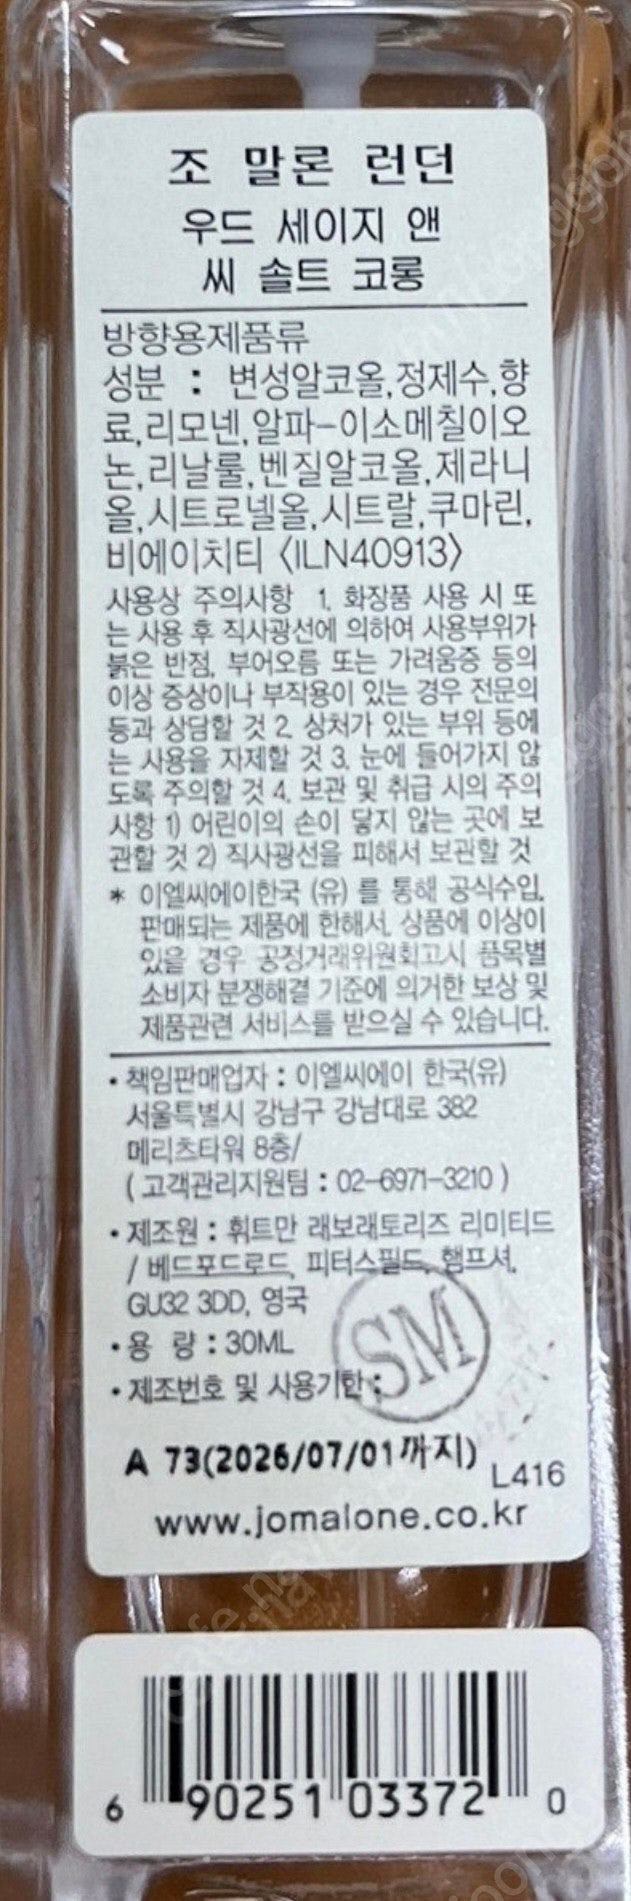 조 말론 런던
우드 세이지 앤
씨 솔트 코롱
방향용제품류
성분 : 변성알코올,정제수,향
료,리모넨,알파-이소메칠이오
논,리날룰,벤질알코올,제라니
올,시트로넬올,시트랄,쿠마린,
비에이치티 〈ILN40913〉
사용상 주의사항 1. 화장품 사용 시 또
는 사용 후 직사광선에 의하여 사용부위가
붉은 반점, 부어오름 또는 가려움증 등의
이상 증상이나 부작용이 있는 경우 전문의
등과 상담할 것 2. 상처가 있는 부위 등에
는 사용을 자제할 것 3. 눈에 들어가지 않
도록 주의할 것 4. 보관 및 취급 시의 주의
사항 1) 어린이의 손이 닿지 않는 곳에 보
관할 것 2) 직사광선을 피해서 보관할 것
* 이엘씨에이한국 (유) 를 통해 공식수입,
판매되는 제품에 한해서, 상품에 이상이
있을 경우 공정거래위원회고시 품목별
소비자 분쟁해결 기준에 의거한 보상 및
제품관련 서비스를 받으실 수 있습니다.
• 책임판매업자 : 이엘씨에이 한국(유)
서울특별시 강남구 강남대로 382
메리츠타워 8층/
( 고객관리지원팀 : 02-6971-3210 )
• 제조원 : 휘트만 래보래토리즈 리미티드
/ 베드포드로드, 피터스필드, 햄프셔,
GU32 3DD, 영국
• 용 량 : 30ML
• 제조번호 및 사용기한 :
SM
A 73(2026/07/01까지)
L416
www.jomalone.co.kr
6 90251 03372 0